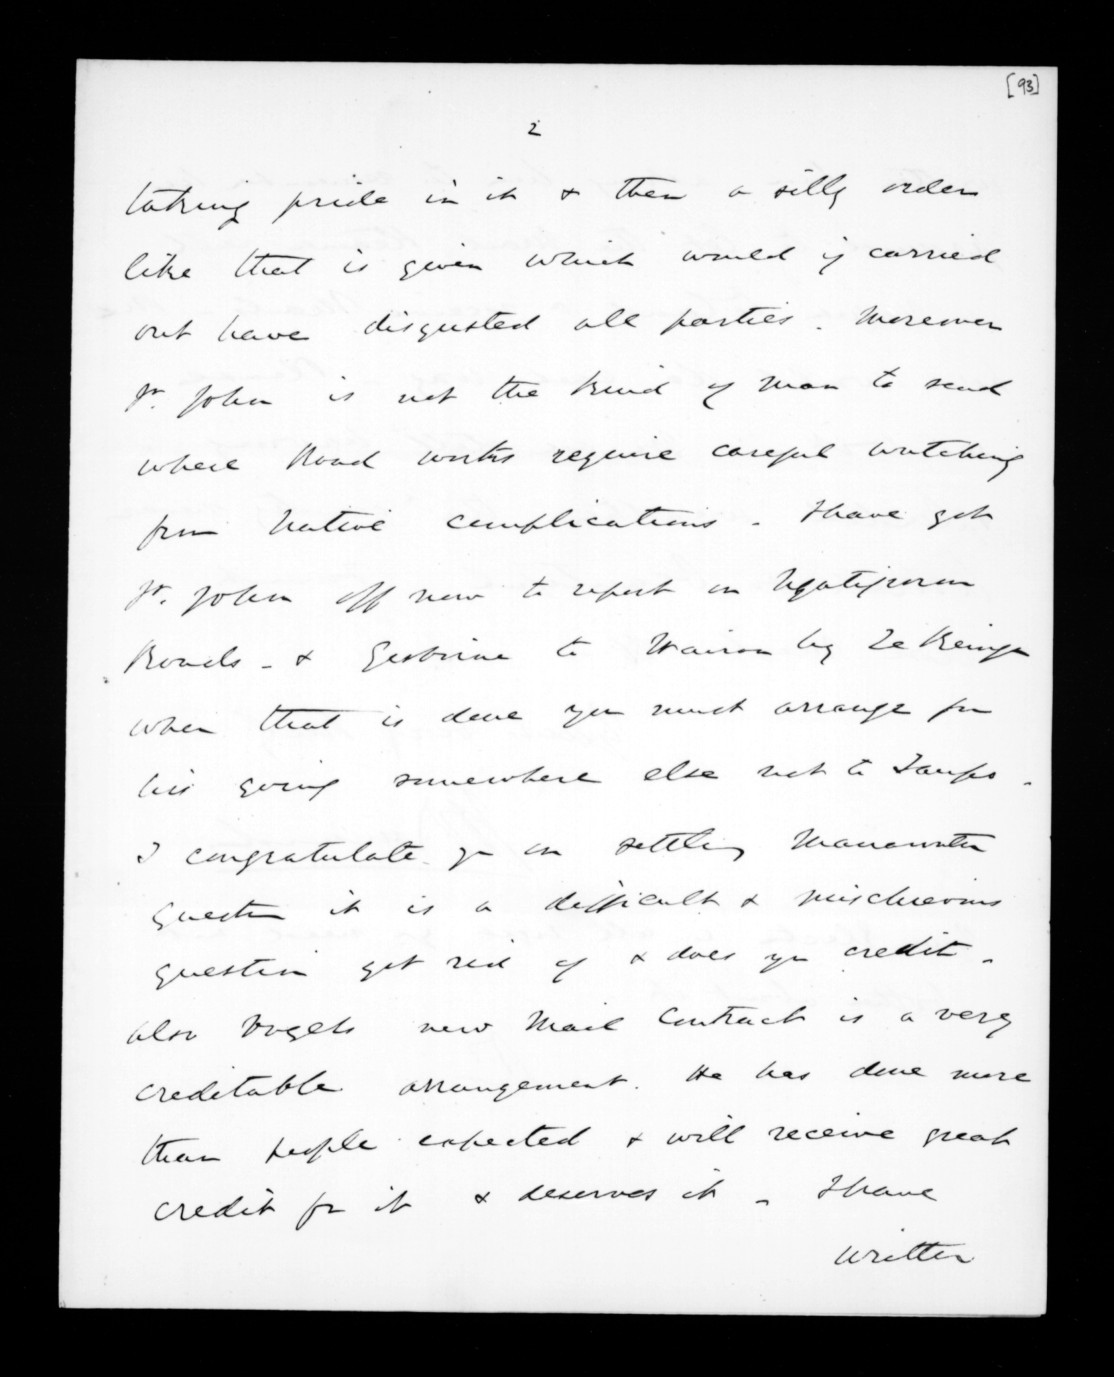 [93]
2
taking pride in it & then a silly order
like that is given which would if carried
out have disgusted all parties. Moreover
St. John is not the kind of man to send
where Road works require careful watching
from Native complications. I have got
St. John off now to report on Ngatiporou
Roads - & Gisborne to Wairoa by Te Reinga
when that is done you must arrange for
his going somewhere else not to Taupo.
I congratulate you on settling Manawatu
question it is a difficult & mischievous
question got rid of & does you credit -
also Vogels new Mail Contract is a very
creditable arrangement. He has done more
than people expected & will receive great
credit for it & deserves it - I have
written